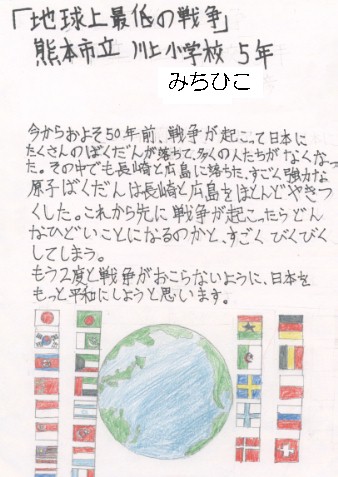 「地球上最低の戦争」
熊本市立 川上小学校 5年
みちひこ
今からおよそ50年前、戦争が起こって日本に
たくさんのばくだんが落ちて、多くの人たちがなくなっ
た。その中でも長崎と広島に落ちた、すごく強力な
原子ばくだんは長崎と広島をほとんどやきつ
くした。これから先に戦争が起こったらどん
なひどいことになるのかと、すごくびくびく
してしまう。
もう2度と戦争がおこらないように、日本を
もっと平和にしようと思います。